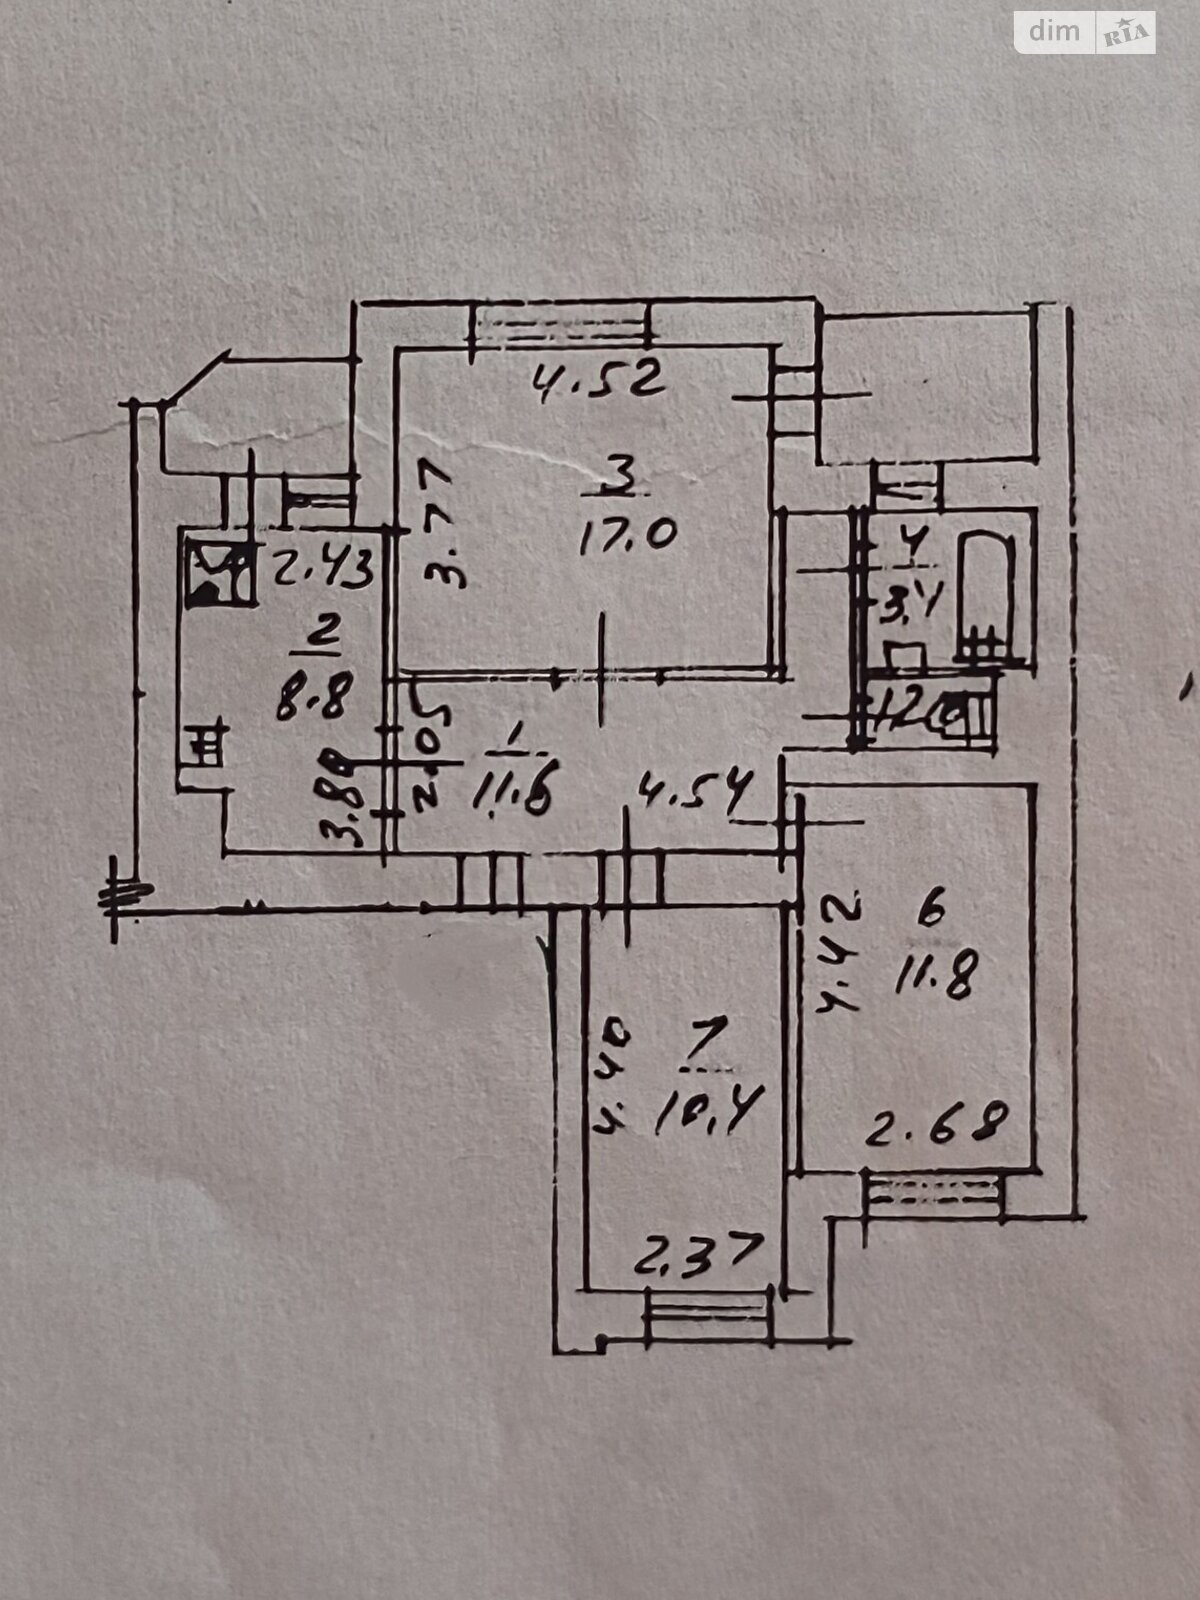 dim RIA
4.52
3.77
3
17.0
2.43
2
8.8
3.80
4
3.4
1.2
2.05
1
11.6
4.54
4.42
6
11.8
2.68
4.40
7
10,4
2.37